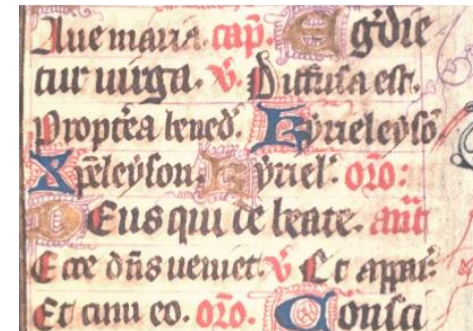 Aue maria. cap̄. Egr̄die
tur uirga. v̄. Diffusa est.
Propt̄ea bened̄. Kyrieleysō
Xp̄eleyson. Kyriel̄. orō:
DEus qui de beate. ant̄
Ecce dn̄s ueniet. v̄ Et appar̄:
Et cum eo. orō. Consci